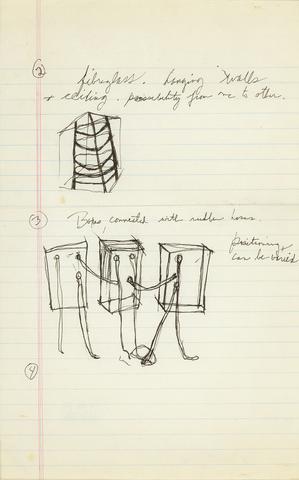 ②
fibreglass. hanging walls
+ ceiling. possibility from one to other.
③ Boxes, connected with rubber hoses.
positioning
can be varied
④